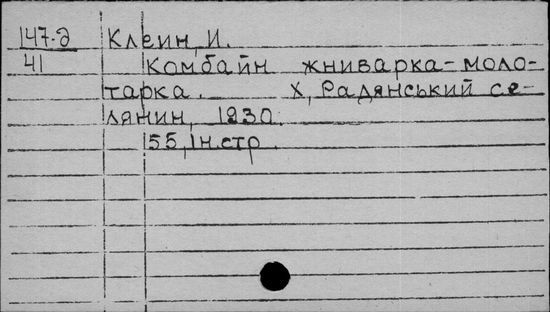 147-д Клеин, И.
41 Комбайн жниварка-моло-
тарка. Х, Радянський се-
лянин, 1930.
55, Iн.стр.